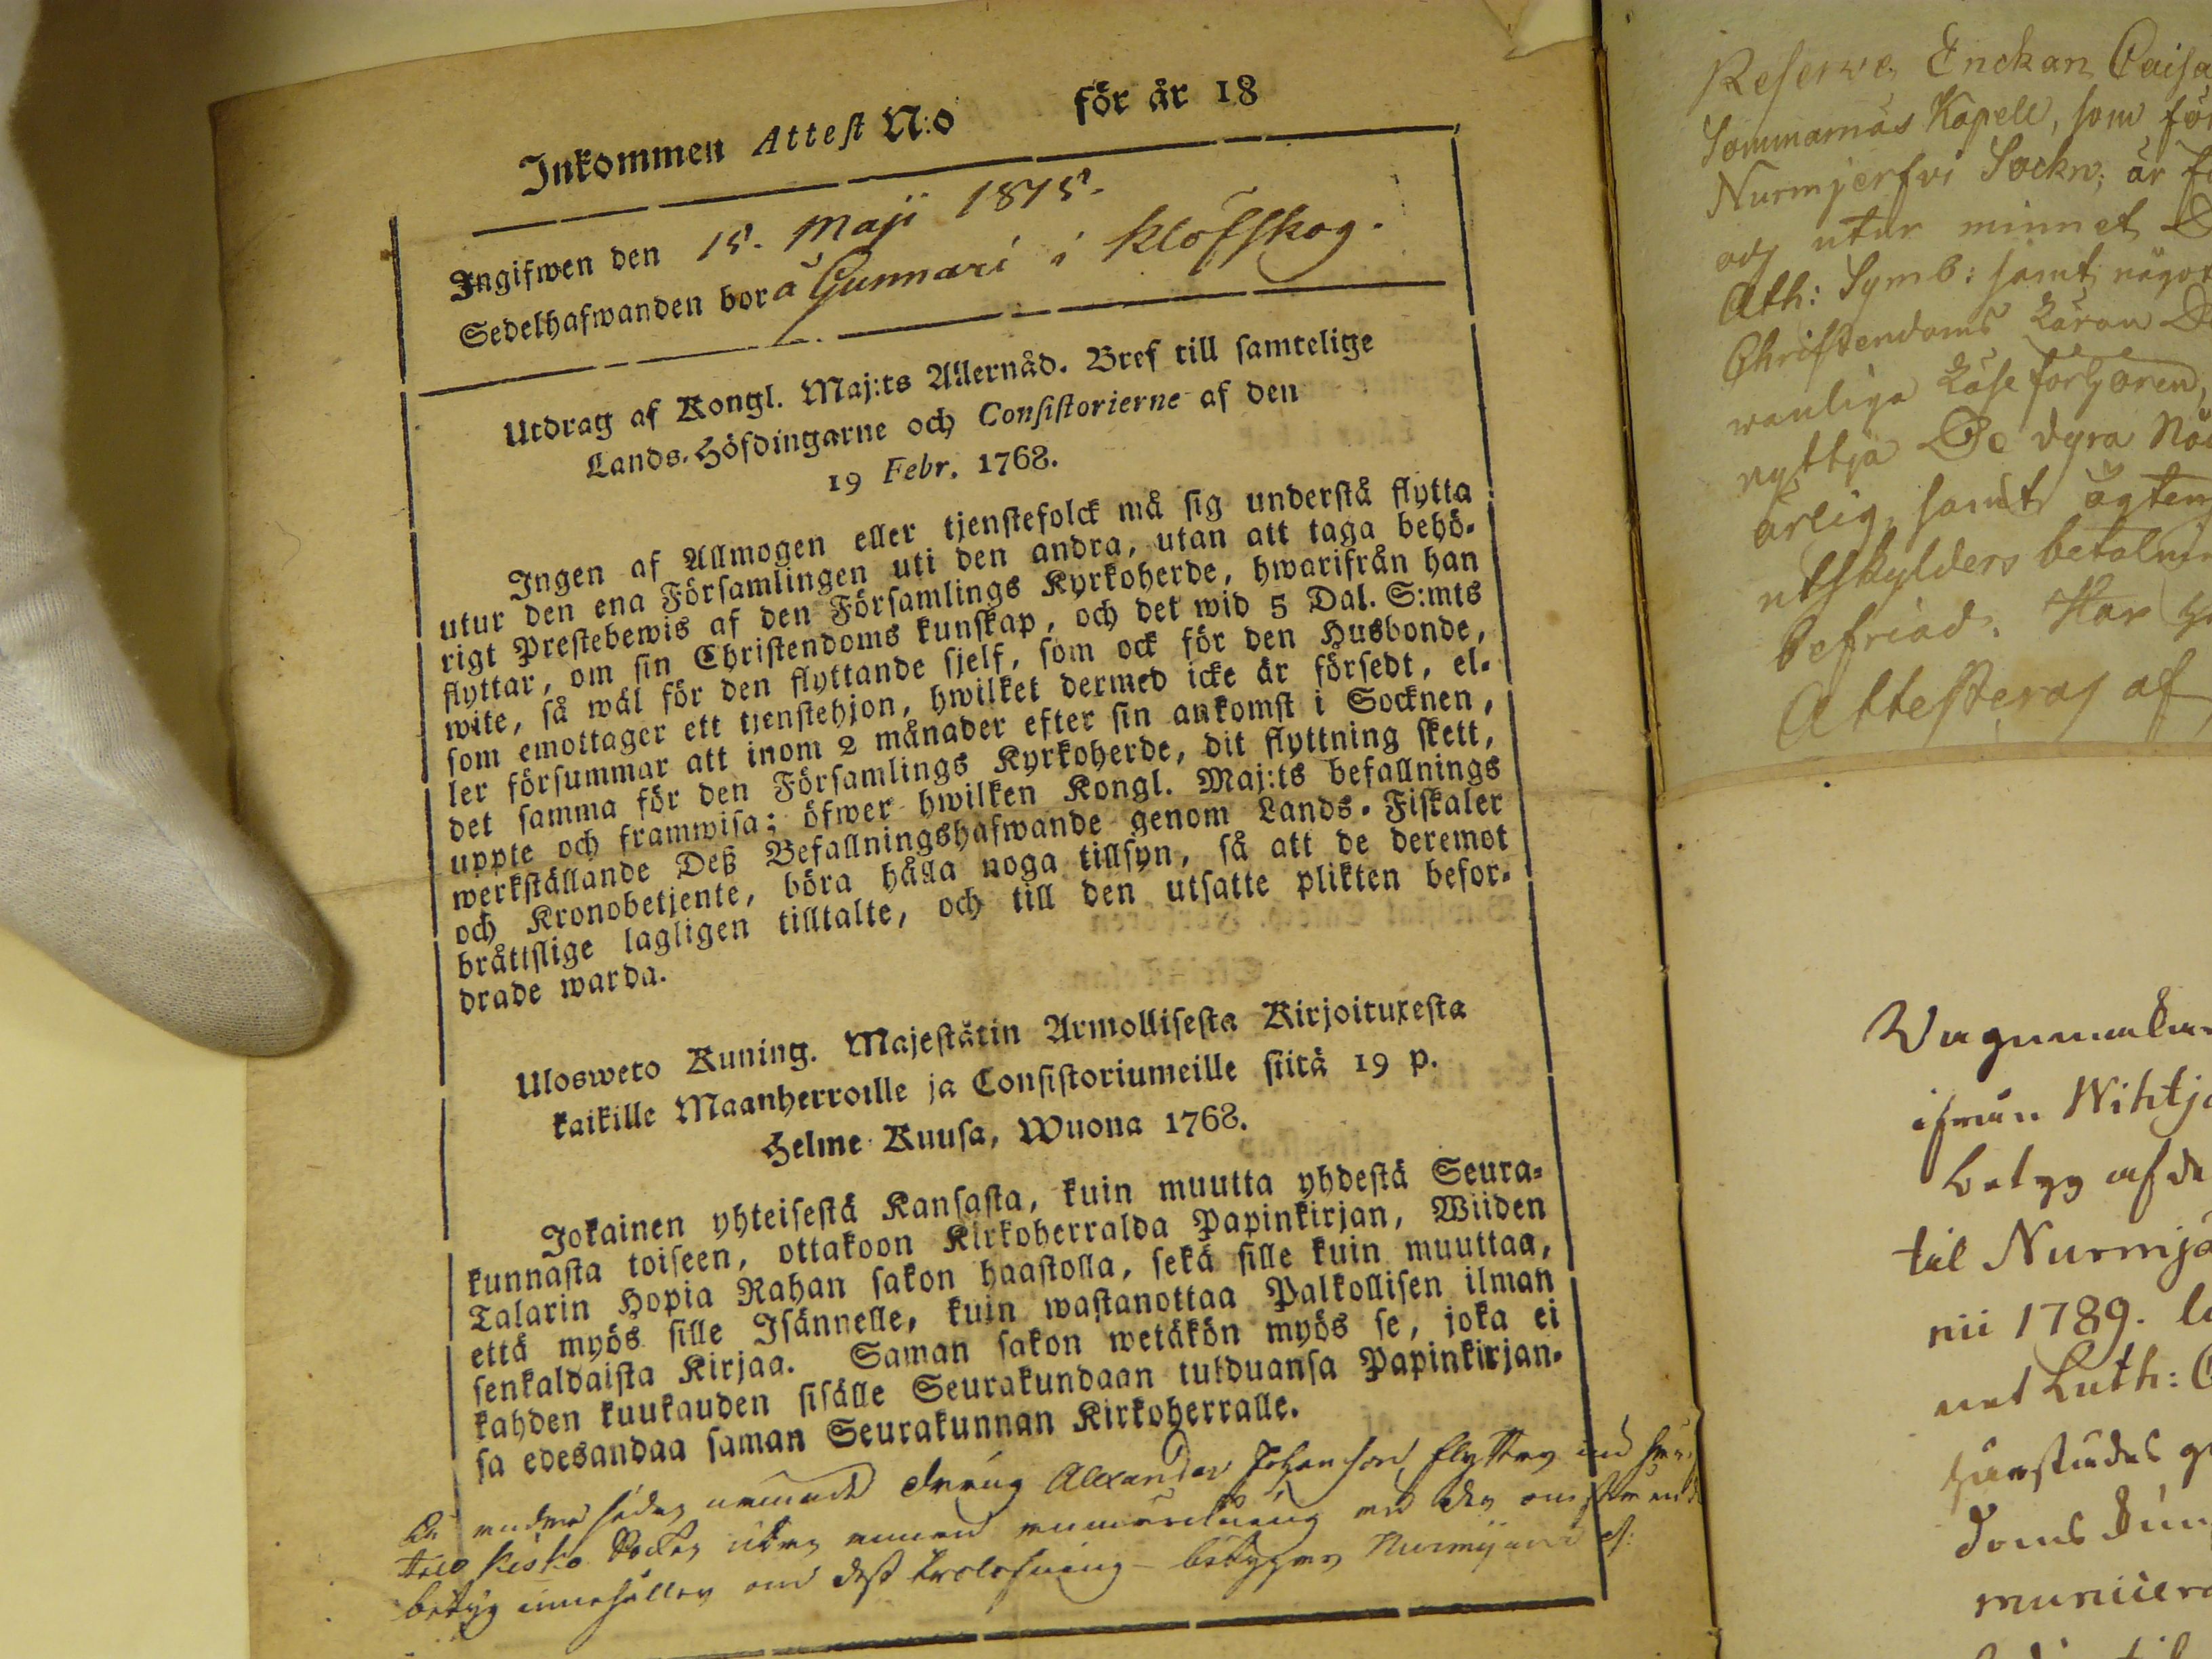 Inkommen Attest N:o för år 18
Ingifwen den 15. Maji 1815.
Sedelhafwanden bor å Gunnari i Klöfskog.
Utdrag af Kongl. Maj:ts Allernåd. Bref till samtelige
Lands-Höfdingarne och Consistorierne af den
19 Febr. 1768.
Ingen af Allmogen eller tjenstefolck må sig understå flytta
utur den ena Församlingen uti den andra, utan att taga behö-
rigt Prestebewis af den Församlings Kyrkoherde, hwarifrån han
flyttar, om sin Christendoms kunskap, och det wid 5 Dal. S:mts
wite, så wäl för den flyttande sjelf, som ock för den Husbonde,
som emottager ett tjenstehjon, hwilket dermed icke är försedt, el-
ler försummar att inom 2 månader efter sin ankomst i Socknen,
det samma för den Församlings Kyrkoherde, dit flyttning skett,
uppte och framwisa; öfwer hwilken Kongl. Maj:ts befallnings
werkställande Deß Befallningshafwande genom Lands-Fiskaler
och Kronobetjente, böra hålla noga tillsyn, så att de deremot
bråttslige lagligen tilltalte, och till den utsatte plikten befor-
drade warda.
Ulosweto Kuning. Majestätin Armollisesta Kirjoituxesta
kaikille Maanherroille ja Consistoriumeille siitä 19 p.
Helme Kuusa, Wuona 1768.
Jokainen yhteisestä Kansasta, kuin muutta yhdestä Seura-
kunnasta toiseen, ottakoon Kirkoherralda Papinkirjan, Wiiden
Talarin Hopia Rahan sakon haastolla, sekä sille kuin muuttaa,
että myös sille Isännelle, kuin wastanottaa Palkollisen ilman
senkaldaista Kirjaa. Saman sakon wetäkön myös se, joka ei
kahden kuukauden sisälle Seurakundaan tulduansa Papinkirjan-
sa edesandaa saman Seurakunnan Kirkoherralle.
andra sidan nemnde dreng Alexander Johansson flyttar
till Kisko Socken utan annan
betyg innehåller om dess betyger
Reserve Enckan Caisa
Sommarnäs Kapell, som för
Nurmjerfvi Sockn; är
och utur minnet
Ath: Symb: samt något
Christendoms Läran
wanliga Läseförhören,
nyttja De dyra
ärlig, samt ägten
utskylders betalnin
befriad. Har
Attesteras af
ifrån Wihtj
betyg af de
til Nurmjä
nii 1789.
net Luth: C
doms